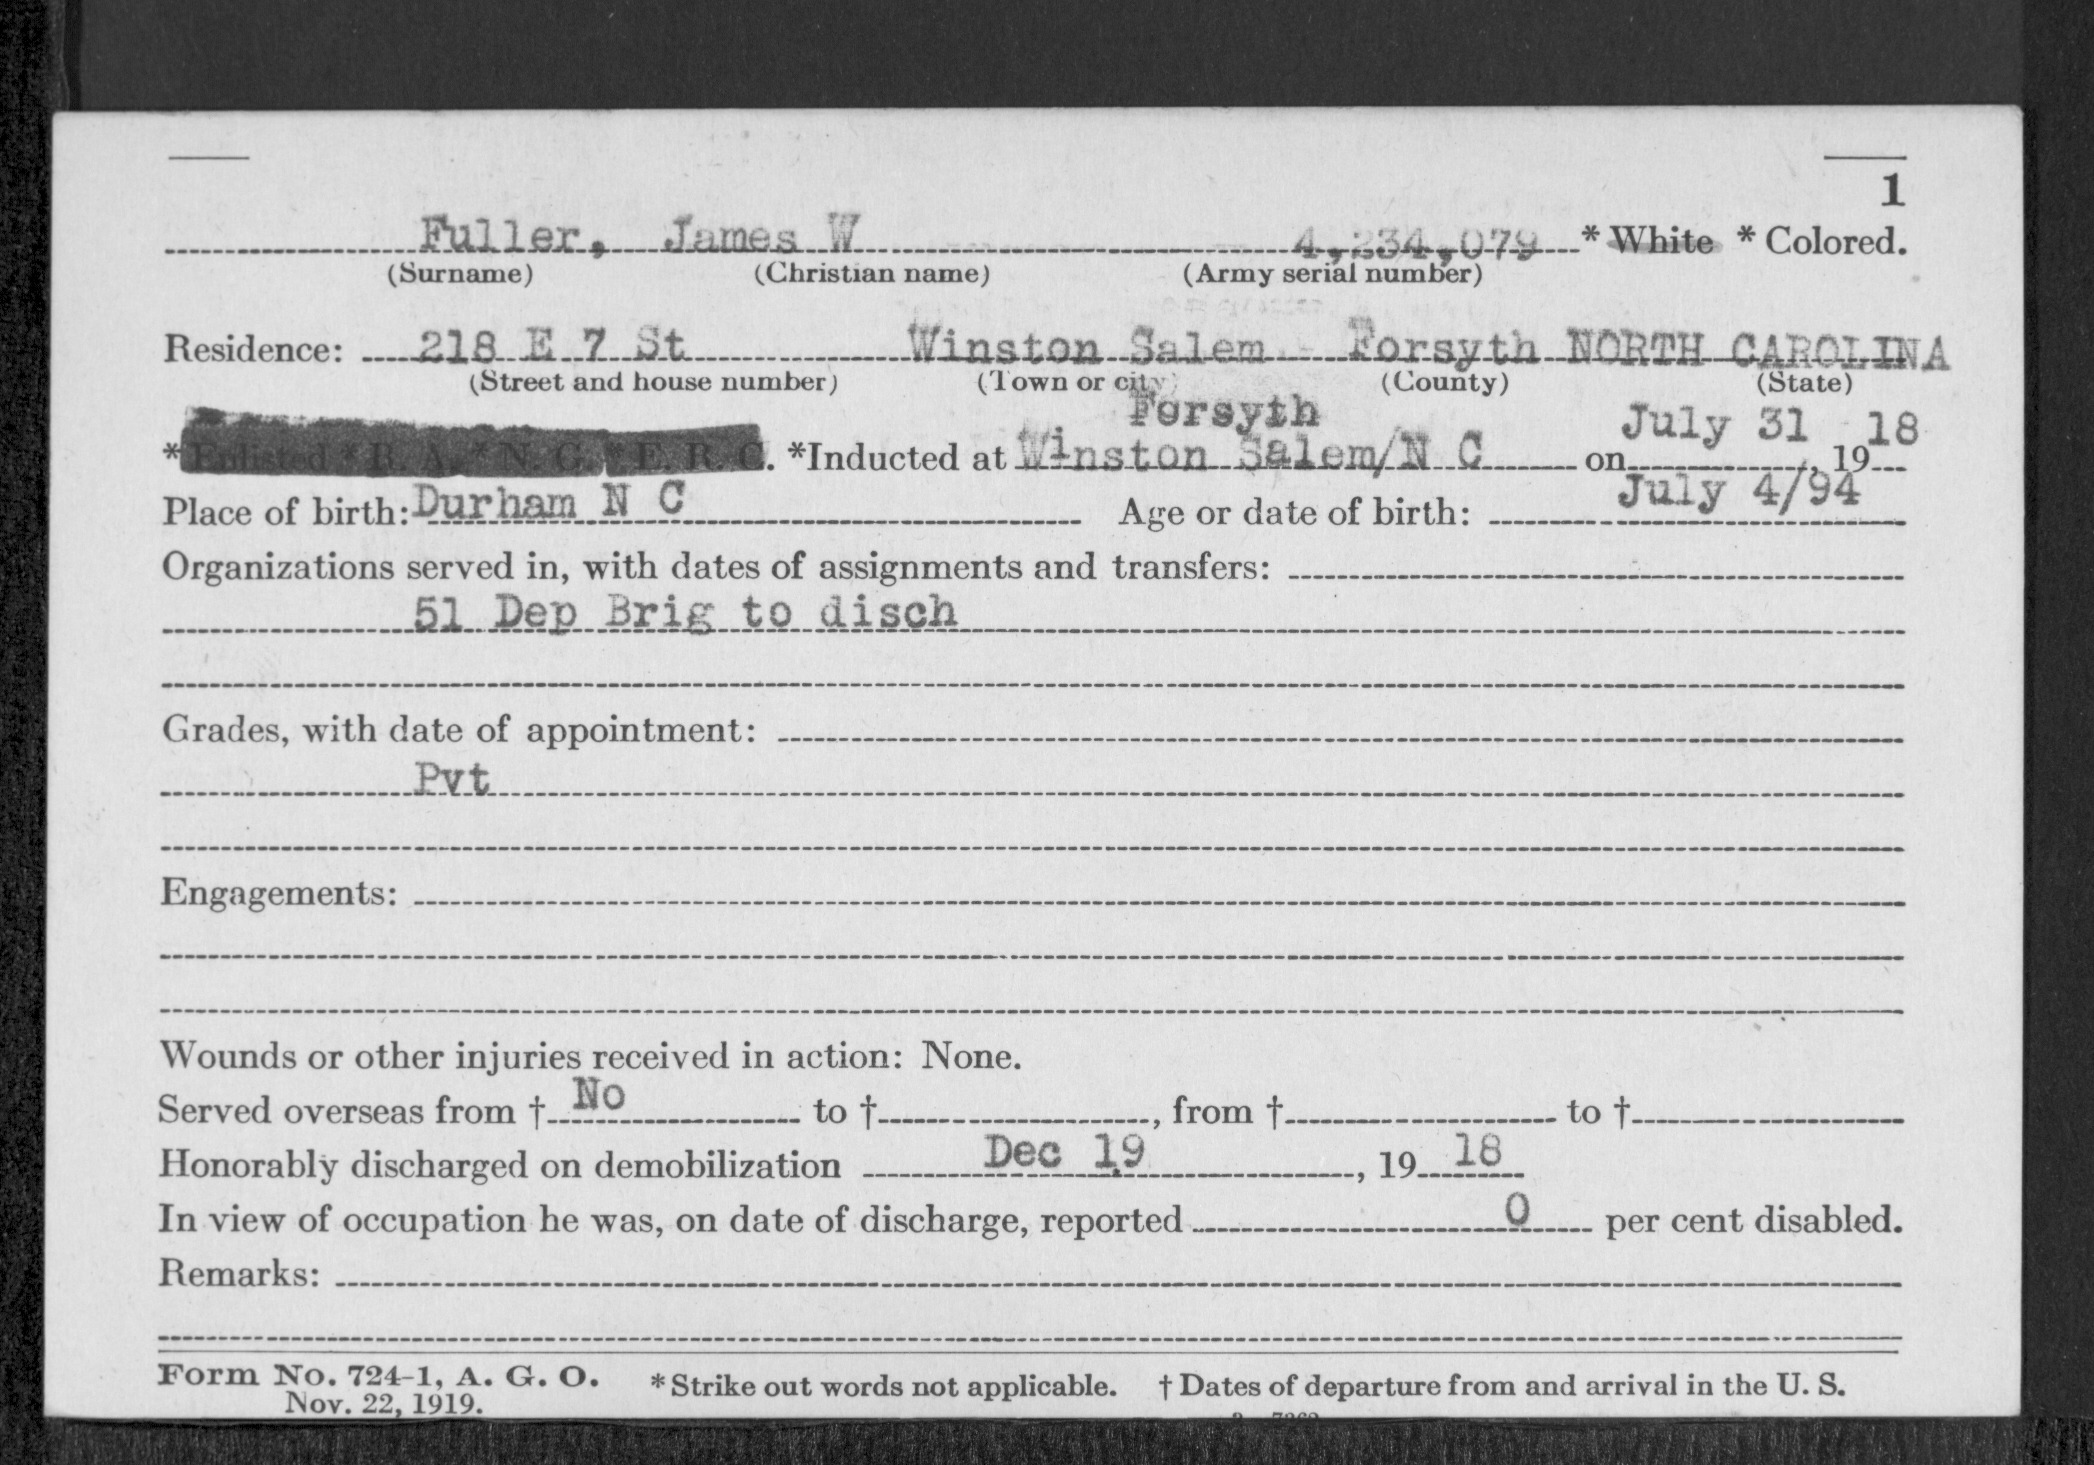 1
Fuller, James W 4,234,079 * White * Colored.
(Surname) (Christian name) (Army serial number)
Residence: 218 E 7 St Winston Salem Forsyth NORTH CAROLINA
(Street and house number) (Town or city) (County) (State)
Forsyth
* Enlisted * R. A. * N. G. * E. R. C. *Inducted at Winston Salem/N C on July 31, 1918
Place of birth: Durham N C Age or date of birth: July 4/94
Organizations served in, with dates of assignments and transfers:
51 Dep Brig to disch
Grades, with date of appointment:
Pvt
Engagements:
Wounds or other injuries received in action: None.
Served overseas from † No to †, from † to †
Honorably discharged on demobilization Dec 19, 1918
In view of occupation he was, on date of discharge, reported 0 per cent disabled.
Remarks:
Form No. 724-1, A. G. O. * Strike out words not applicable. † Dates of departure from and arrival in the U. S.
Nov. 22, 1919.